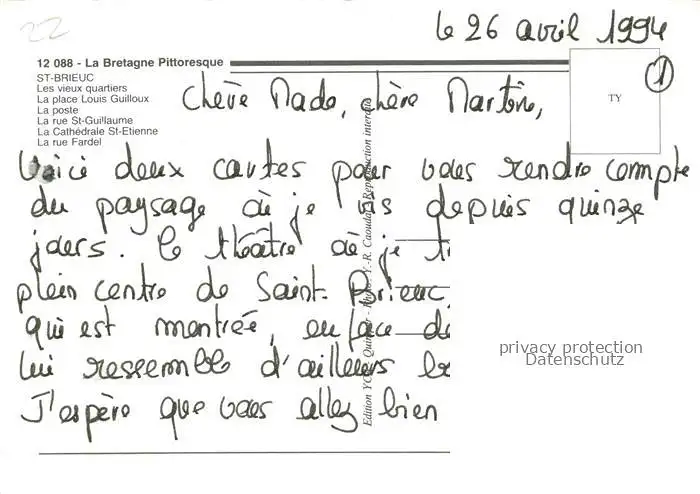 22
le 26 avril 1994
1
12 088 - La Bretagne Pittoresque
ST-BRIEUC
Les vieux quartiers
La place Louis Guilloux
La poste
La rue St-Guillaume
La Cathédrale St-Etienne
La rue Fardel
TY
Chère Mado, chère Martine,
Voici deux cartes pour vous rendre compte
du paysage où je vis depuis quinze
jours. Le théâtre où je
plein centre de Saint-Brieuc,
qui est montrée, en face
lui ressemble d'ailleurs
J'espère que vous allez bien
Reproduction interdite
privacy protection
Datenschutz